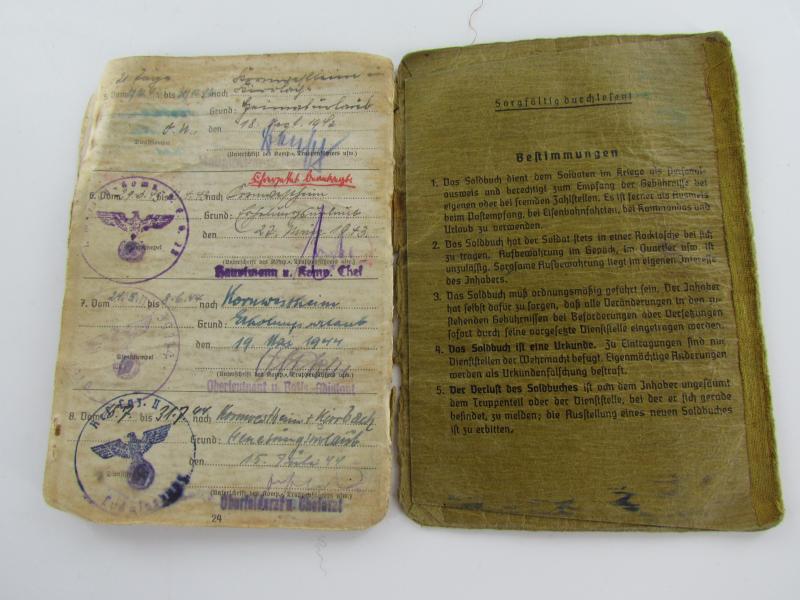 20 Tage Kornwestheim u.
5. Vom bis nach
Grund: Heimaturlaub
den 18. Dez. 1942
Dienststempel
(Unterschrift des Komp.-, Truppenführers usw.)
6. Vom bis nach Kornwestheim
Grund: Erholungsurlaub
den 27. 1943
Dienststempel
(Unterschrift des Komp.-, Truppenführers usw.)
Hauptmann u. Komp. Chef
7. Vom 21.5. bis 8.6.44 nach Kornwestheim
Grund: Erholungsurlaub
den 19. Mai 1944
Dienststempel
(Unterschrift des Komp.-, Truppenführers usw.)
Oberleutnant u. Batls.-Adjutant
8. Vom bis 31.7.44 nach Kornwestheim
Grund: Genesungsurlaub
den 15. Juli 44
Dienststempel
(Unterschrift des Komp.-, Truppenführers usw.)
Oberfeldarzt u. Chefarzt
24
Sorgfältig durchlesen!
Bestimmungen
1. Das Soldbuch dient dem Soldaten im Kriege als Personal-
ausweis und berechtigt zum Empfang der Gebührnisse bei
eigenen oder bei fremden Zahlstellen. Es ist ferner als Ausweis
beim Postempfang, bei Eisenbahnfahrten, bei Kommandos und
Urlaub zu verwenden.
2. Das Soldbuch hat der Soldat stets in einer Rocktasche bei sich
zu tragen. Aufbewahrung im Gepäck, im Quartier usw. ist
unzulässig. Sorgsame Aufbewahrung liegt im eigenen Interesse
des Inhabers.
3. Das Soldbuch muß ordnungsmäßig geführt sein. Der Inhaber
hat selbst dafür zu sorgen, daß alle Veränderungen in den zu-
stehenden Gebührnissen bei Beförderungen oder Versetzungen
sofort durch seine vorgesetzte Dienststelle eingetragen werden.
4. Das Soldbuch ist eine Urkunde. Zu Eintragungen sind nur
Dienststellen der Wehrmacht befugt. Eigenmächtige Änderungen
werden als Urkundenfälschung bestraft.
5. Der Verlust des Soldbuches ist vom Inhaber ungesäumt
dem Truppenteil oder der Dienststelle, bei der er sich gerade
befindet, zu melden; die Ausstellung eines neuen Soldbuches
ist zu erbitten.